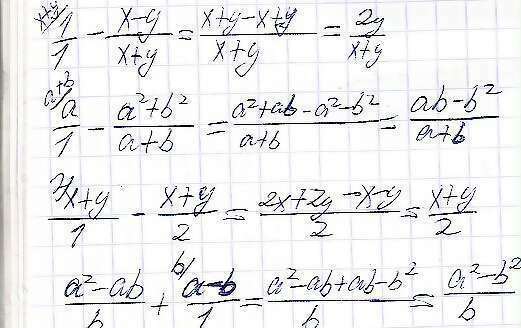 x+y/ 1/1 - (x-y)/(x+y) = (x+y-x+y)/(x+y) = 2y/(x+y)
a+b/ a/1 - (a²+b²)/(a+b) = (a²+ab-a²-b²)/(a+b) = (ab-b²)/(a+b)
2/ (x+y)/1 - (x+y)/2 = (2x+2y-x-y)/2 = (x+y)/2
(a²-ab)/b + b/ (a-b)/1 = (a²-ab+ab-b²)/b = (a²-b²)/b